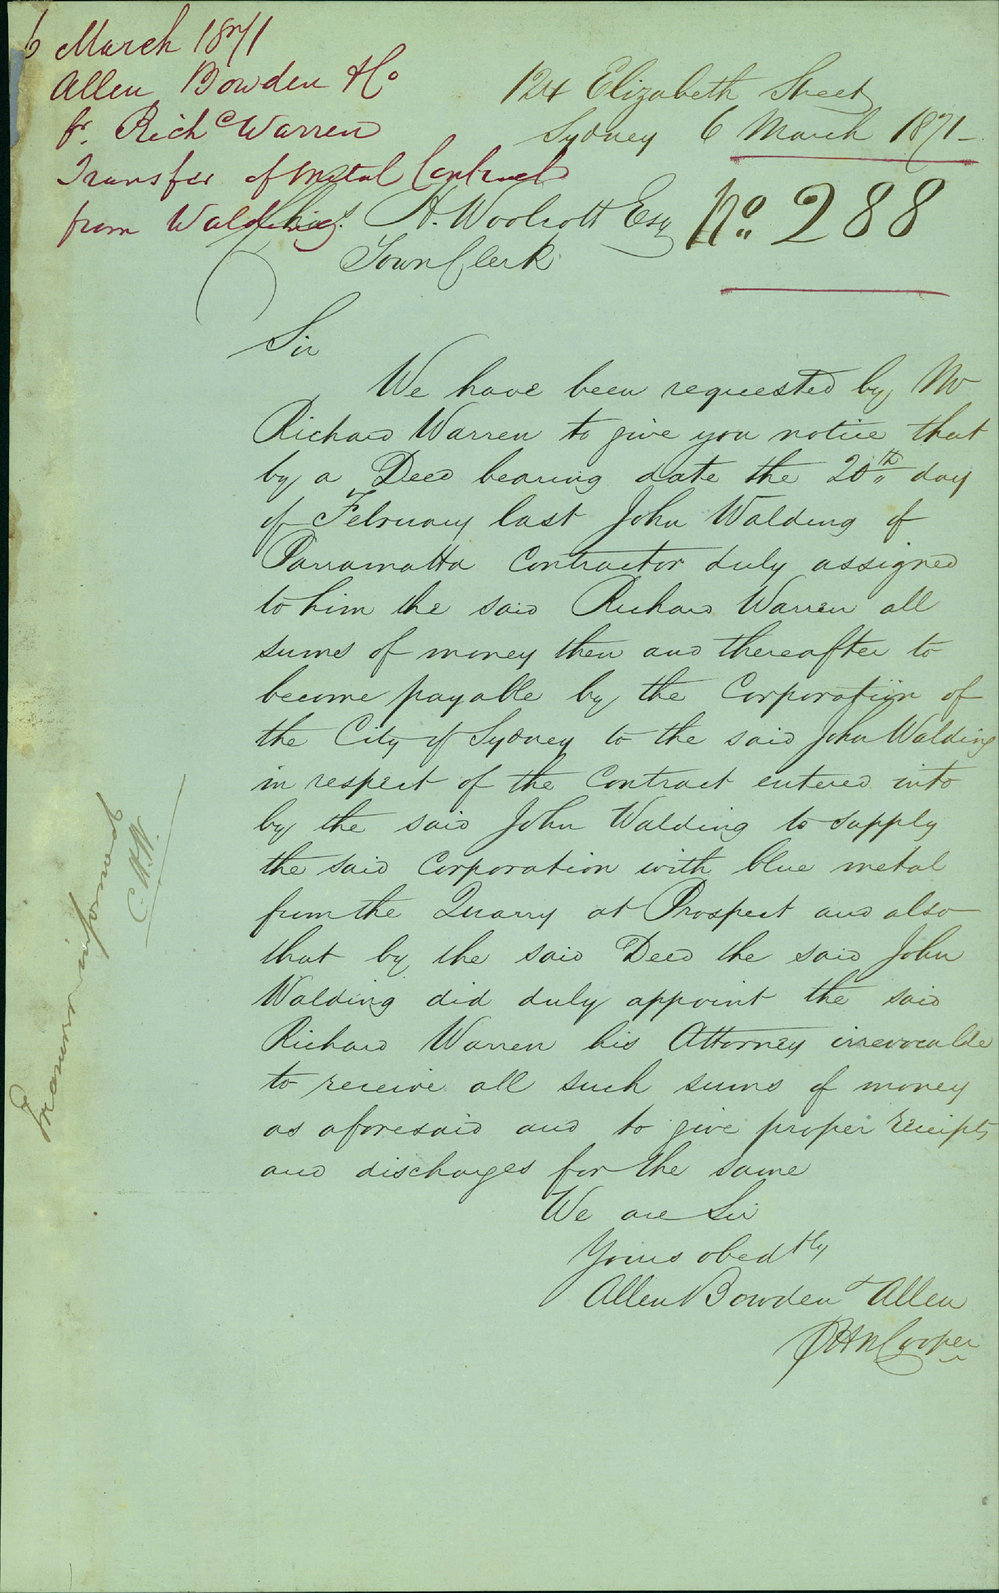 6 March 1871
Allen Bowden & Co
fr. Richd Warren
Transfer of Metal Contract
from Walding
124 Elizabeth Street
Sydney 6 March 1871
No. 288
Chas. H. Woolcott Esq
Town Clerk
Sir
We have been requested by Mr
Richard Warren to give you notice that
by a Deed bearing date the 20th day
of February last John Walding of
Parramatta Contractor duly assigned
to him the said Richard Warren all
sums of money then and thereafter to
become payable by the Corporation of
the City of Sydney to the said John Walding
in respect of the Contract entered into
by the said John Walding to supply
the said Corporation with blue metal
from the Quarry at Prospect and also
that by the said Deed the said John
Walding did duly appoint the said
Richard Warren his Attorney irrevocable
to receive all such sums of money
as aforesaid and to give proper receipts
and discharges for the same
We are Sir
Yours obedtly
Allen Bowden & Allen
Cooper
informed
C.H.W.